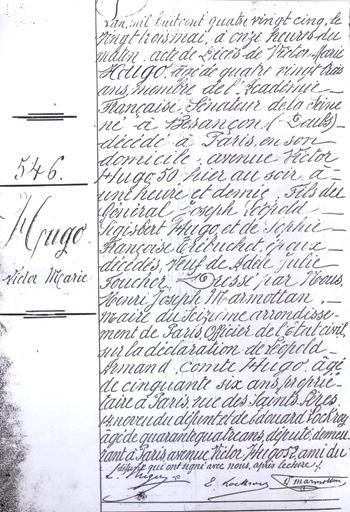 546.
Hugo
Victor Marie
L'an mil huit cent quatre vingt cinq, le
vingt trois mai, à onze heures du
matin. acte de décès de Victor Marie
Hugo, âgé de quatre vingt trois
ans, membre de l'Académie
Française, Sénateur de la Seine
né à Besançon (Doubs)
décédé à Paris, en son
domicile, avenue Victor
Hugo 50, hier au soir à
une heure et demie, fils du
Général Joseph Léopold
Sigisbert Hugo, et de Sophie
Françoise Trébuchet, époux
décédés, Veuf de Adèle Julie
Foucher, Dressé par Nous,
Henri Joseph Marmottan,
maire du Seizième arrondisse-
ment de Paris, Officier de l'état civil,
sur la déclaration de Léopold
Armand, comte Hugo, âgé
de cinquante six ans, proprié-
taire à Paris, rue des Saints Pères
neveu du défunt, et de Edouard Lockroy
âgé de quarante quatre ans, député, demeu-
rant à Paris, avenue Victor Hugo 52, ami du
défunt qui ont signé avec nous, après lecture ./.
L. Hugo E. Lockroy H Marmottan